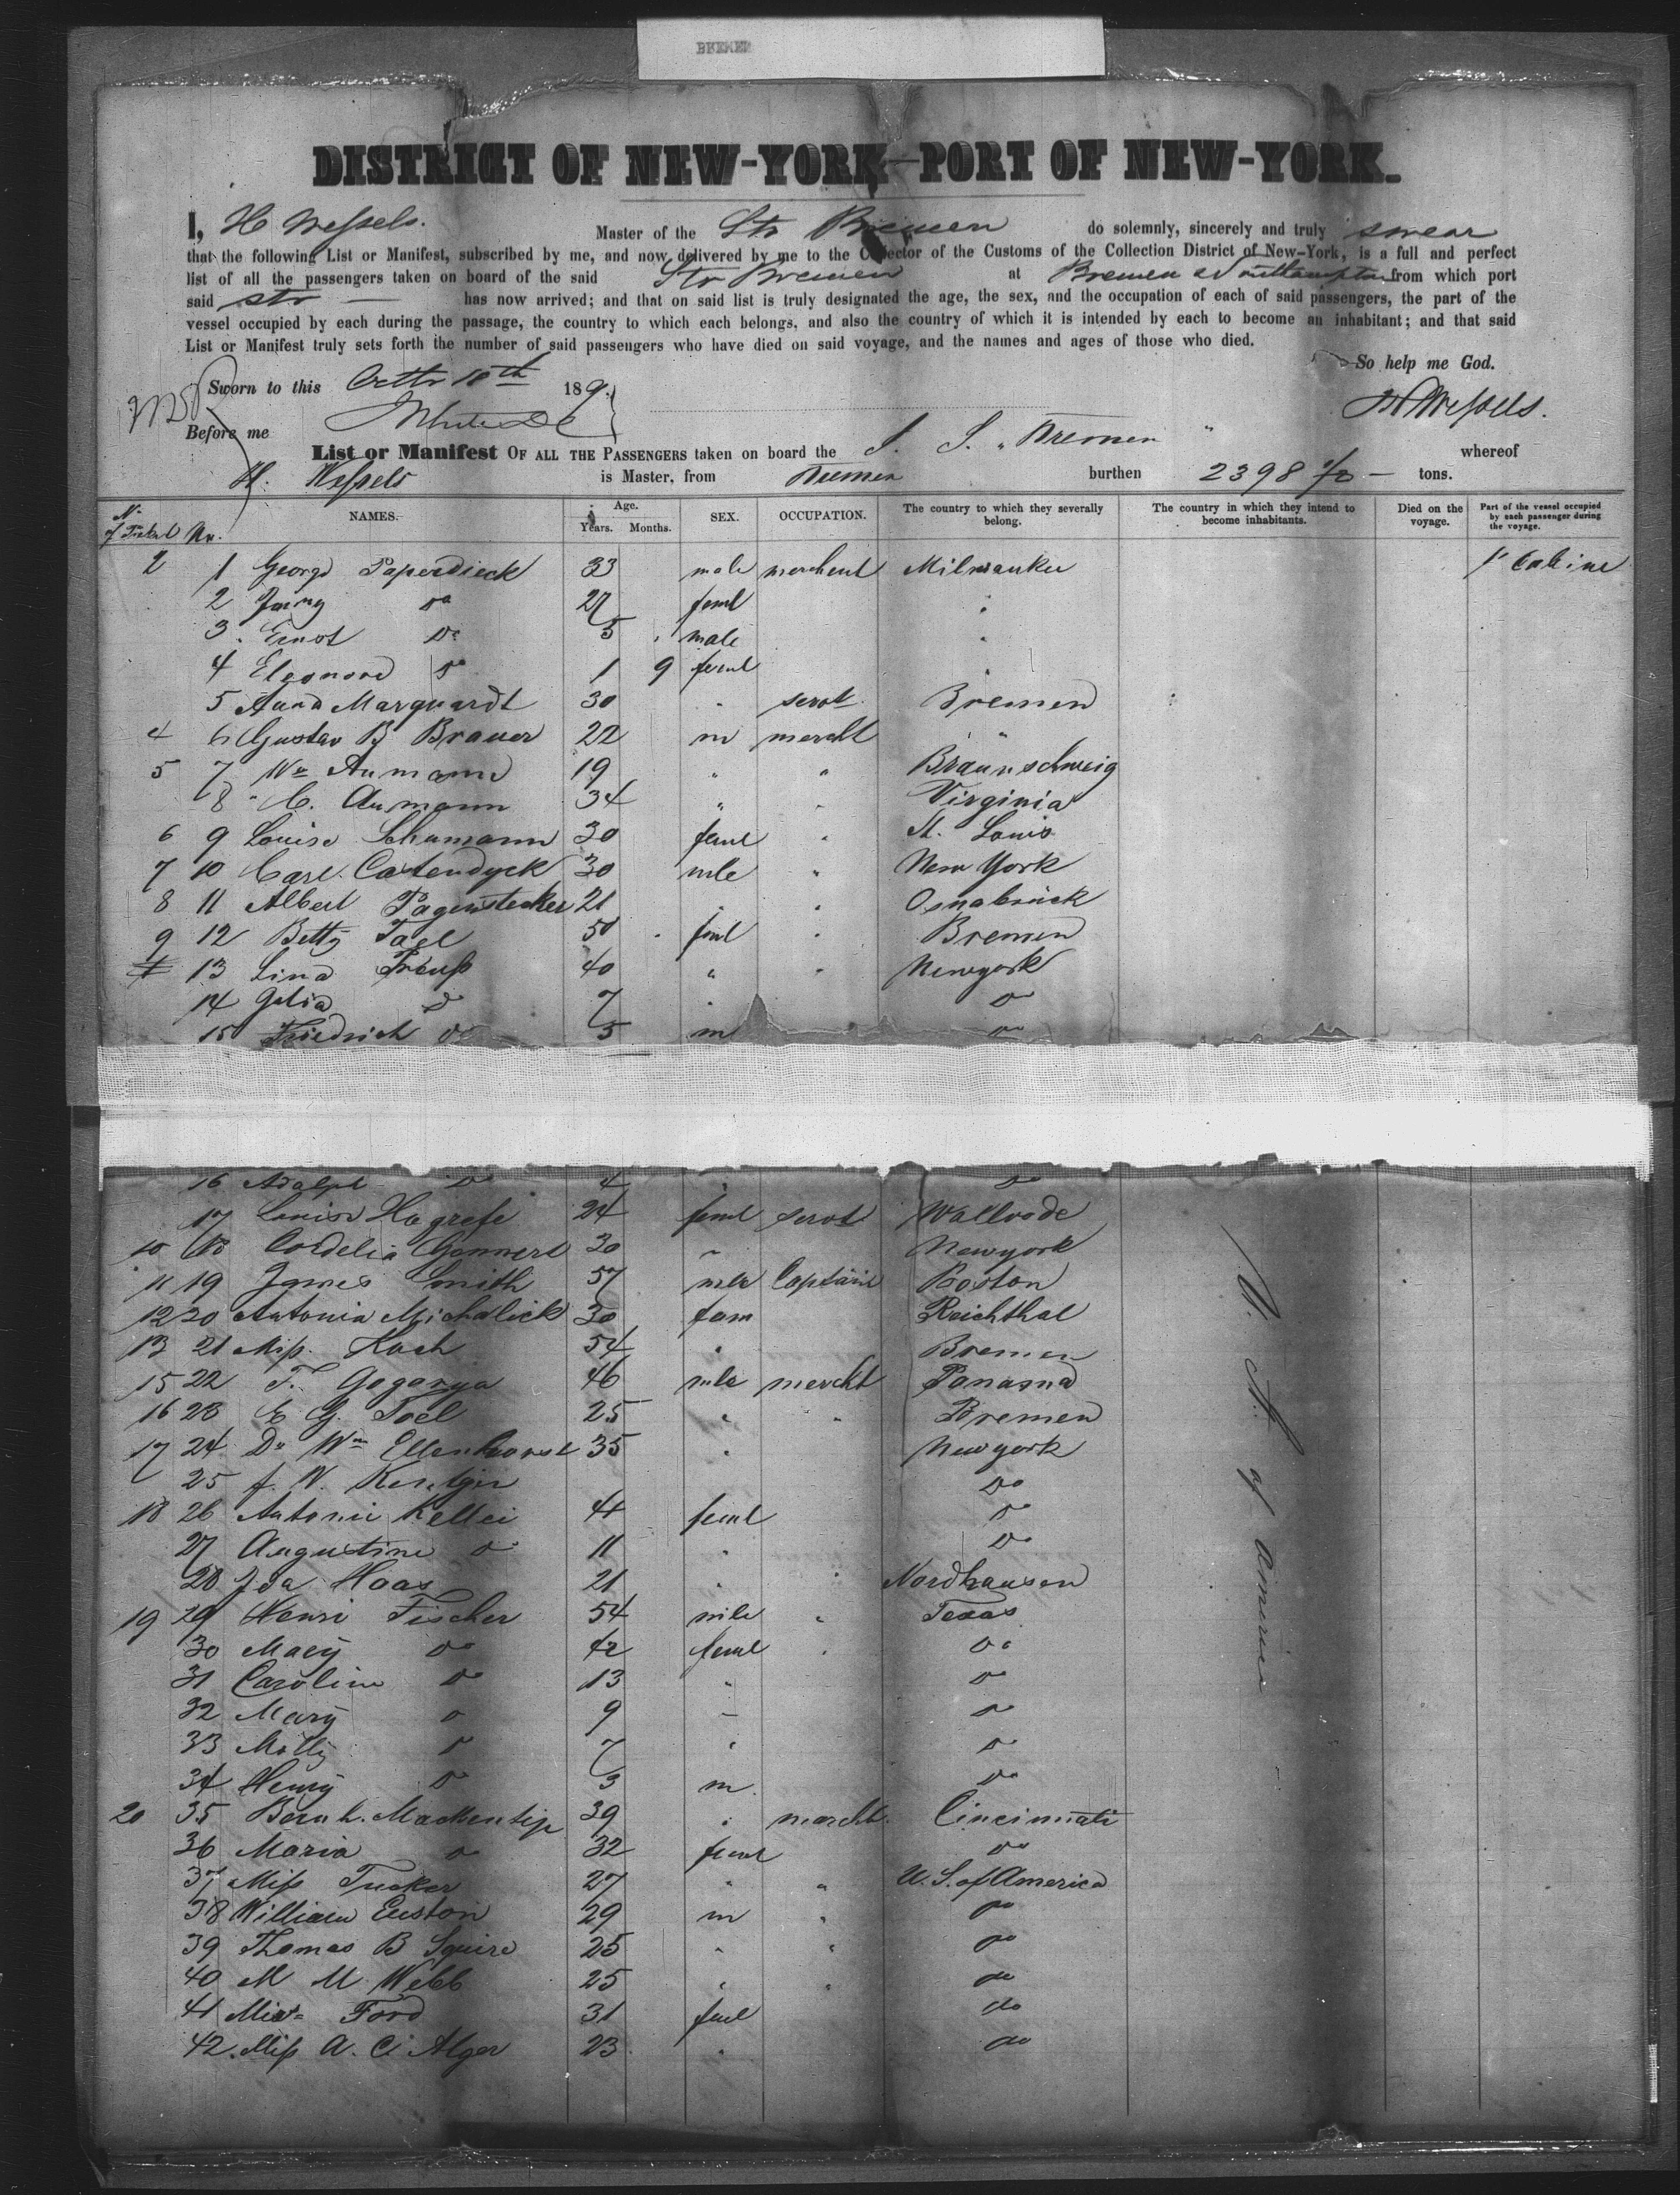 BREMEN
DISTRICT OF NEW-YORK—PORT OF NEW-YORK.
I, H Wessels. Master of the Str Bremen do solemnly, sincerely and truly swear
that the following List or Manifest, subscribed by me, and now delivered by me to the Collector of the Customs of the Collection District of New-York, is a full and perfect
list of all the passengers taken on board of the said Str Bremen at Bremen & Southampton from which port
said str has now arrived; and that on said list is truly designated the age, the sex, and the occupation of each of said passengers, the part of the
vessel occupied by each during the passage, the country to which each belongs, and also the country of which it is intended by each to become an inhabitant; and that said
List or Manifest truly sets forth the number of said passengers who have died on said voyage, and the names and ages of those who died.
So help me God.
Sworn to this 18th 189.
H Wessels.
Before me
List or Manifest OF ALL THE PASSENGERS taken on board the S. S. „ Bremen " whereof
H. Wessels is Master, from Bremen burthen 2398 tons.
No of Ticket No. NAMES. Age. Years. Months. SEX. OCCUPATION. The country to which they severally belong. The country in which they intend to become inhabitants. Died on the voyage. Part of the vessel occupied by each passenger during the voyage.
2 1 George Paperdieck 33 male merchent Milwaukee 1' Cabine
2 Jenny do 27 feml "
3 Ernst do 5 male "
4 Eleonore do 1 9 feml "
5 Anna Marquardt 30 " servt. Bremen
4 6 Gustav B Brauer 22 m mercht "
5 7 Wm Aumann 19 " " Braunschweig
8 C. Aumann 34 " " Virginia
6 9 Louise Schumann 30 feml " St. Louis
7 10 Carl Catendyck 30 mle " New York
8 11 Albert Pagenstecker 21 " " Osnabrück
9 12 Betty Tael 50 feml " Bremen
13 Lina 40 " " Newyork
14 Julia do 7 " do
15 Friedrich do 5 m do
16 Adolph do 4 " do
17 Louise Hogrefe 24 feml servt Wallrode
10 18 Cordelia 30 " Newyork
11 19 James Smith 57 mle Captain Boston
12 20 Antonia Michalick 30 fem Reichthal
13 21 Miss. Koch 54 " Bremen
15 22 T. Gogorza 46 mle mercht Panama
16 23 E G. Toel 25 " " Bremen
17 24 Dr Wm Ellenhorst 35 " Newyork
25 J. W. do
18 26 Antonie Kellei 44 feml do
27 Augustine do 11 " do
28 Ida Haas 21 " " Nordhausen
19 29 Henri Fischer 54 mle " Texas
30 Mary do 42 feml " do
31 Caroline do 13 " do
32 Mary do 9 " do
33 Molly do 7 " do
34 Henry do 3 m do
20 35 Bernh. 39 " mercht. Cincinnati
36 Maria do 32 feml do
37 Miss Tucker 27 " " U. S. of America
38 William Euston 29 m " do
39 Thomas B Squire 25 " " do
40 M M Webb 25 " " do
41 Ford 31 feml do
42. Miss A. C. Alger 23 " do
U. St. of America